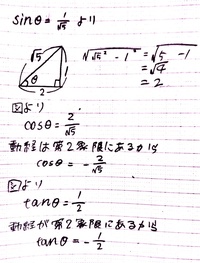 sinθ = 1/√5 より
√5 θ 2 1
√(√5² - 1²) = √5 - 1
= √4
= 2
図より
cosθ = 2/√5
動径は第2象限にあるから
cosθ = - 2/√5
図より
tanθ = 1/2
動径が第2象限にあるから
tanθ = - 1/2